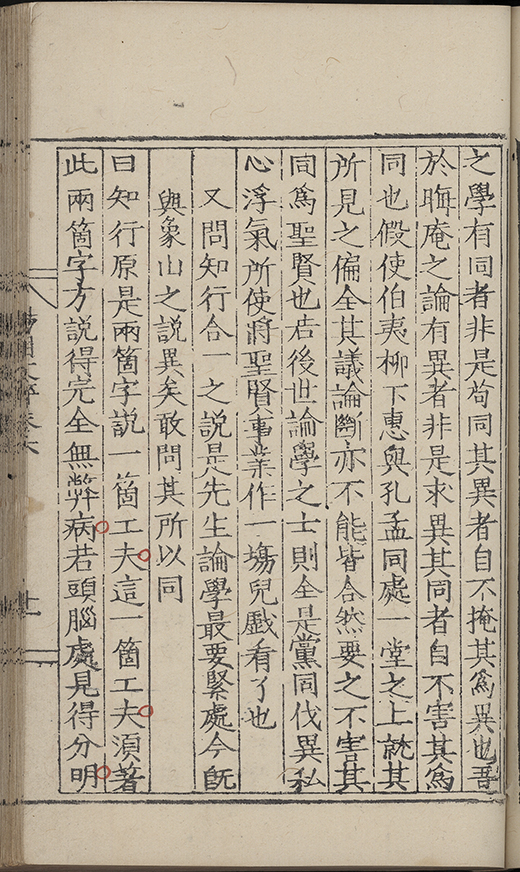 之學有同者非是茍同其異者自不掩其爲異也吾
於晦庵之論有異者非是求異其同者自不害其爲
同也假使伯夷柳下惠與孔孟同處一堂之上就其
所見之偏全其議論斷亦不能皆合然要之不害其
同爲聖賢也若後世論學之士則全是黨同伐異私
心浮氣所使將聖賢事業作一塲兒戲看了也
又問知行合一之說是先生論學最要緊處今旣
與象山之說異矣敢問其所以同
曰知行原是兩箇字說一箇工夫這一箇工夫須著
此兩箇字方說得完全無弊病若頭腦處見得分明